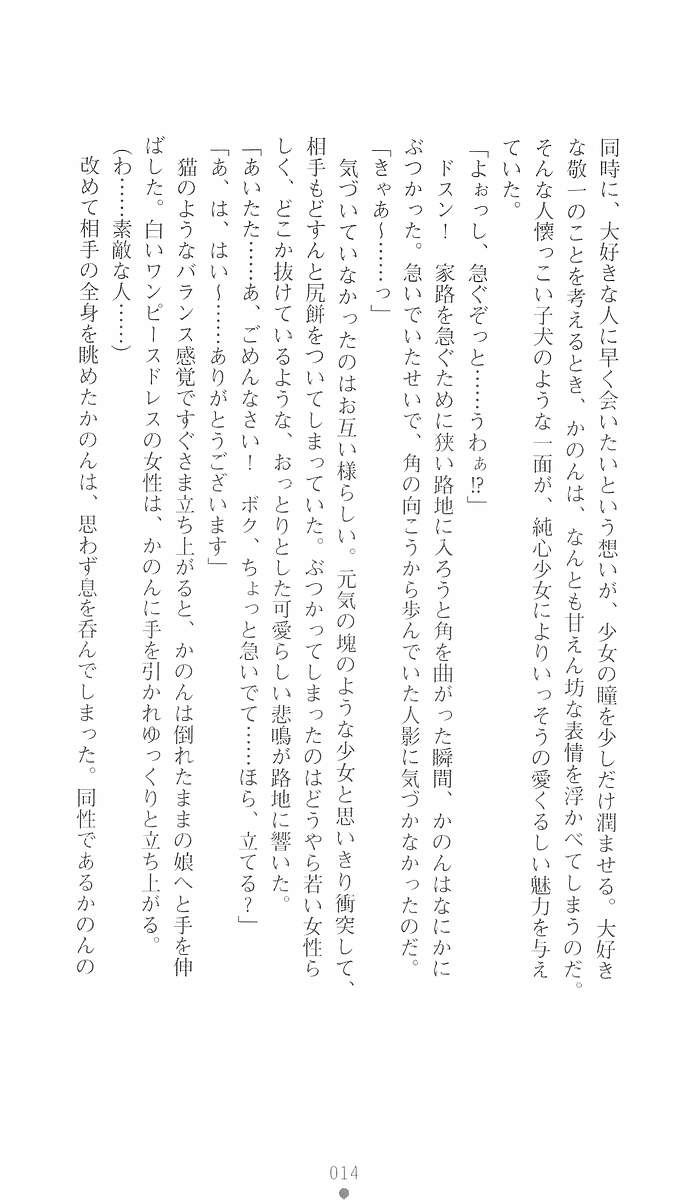 同時に、大好きな人に早く会いたいという想いが、少女の瞳を少しだけ潤ませる。大好き
な敬一のことを考えるとき、かのんは、なんとも甘えん坊な表情を浮かべてしまうのだ。
そんな人懐っこい子犬のような一面が、純心少女によりいっそうの愛くるしい魅力を与え
ていた。
「よぉっし、急ぐぞっと……うわぁ!?」
ドスン！　家路を急ぐために狭い路地に入ろうと角を曲がった瞬間、かのんはなにかに
ぶつかった。急いでいたせいで、角の向こうから歩んでいた人影に気づかなかったのだ。
「きゃあ～……っ」
気づいていなかったのはお互い様らしい。元気の塊のような少女と思いきり衝突して、
相手もどすんと尻餅をついてしまっていた。ぶつかってしまったのはどうやら若い女性ら
しく、どこか抜けているような、おっとりとした可愛らしい悲鳴が路地に響いた。
「あいたた……あ、ごめんなさい！　ボク、ちょっと急いでて……ほら、立てる？」
「あ、は、はい～……ありがとうございます」
猫のようなバランス感覚ですぐさま立ち上がると、かのんは倒れたままの娘へと手を伸
ばした。白いワンピースドレスの女性は、かのんに手を引かれゆっくりと立ち上がる。
(わ……素敵な人……)
改めて相手の全身を眺めたかのんは、思わず息を呑んでしまった。同性であるかのんの
014